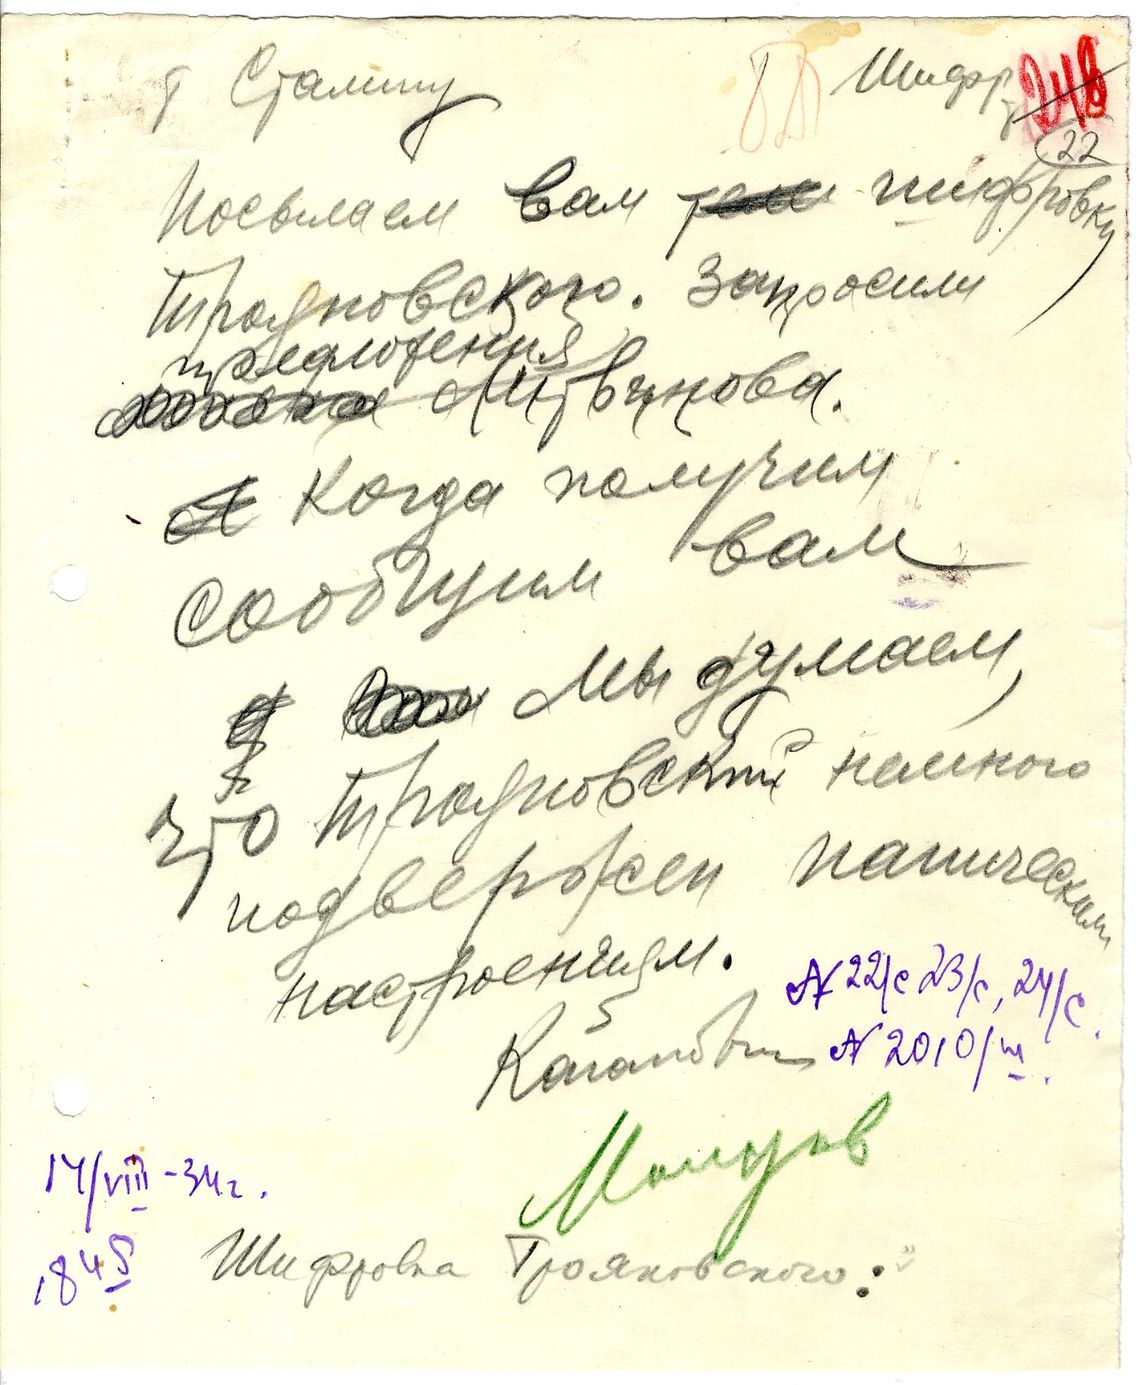 т Сталину
Шифр
248
22
Посылаем вам шифровку
Трояновского. Запросили
предложения
Литвинова.
Когда получим
сообщим вам
Мы думаем,
что Трояновский немного
подвержен паническим
настроениям.
N 22/с 23/с, 24/с.
Каганович N 2010/ш.
Молотов
14/VIII-34г.
18 45
Шифровка Трояновского: